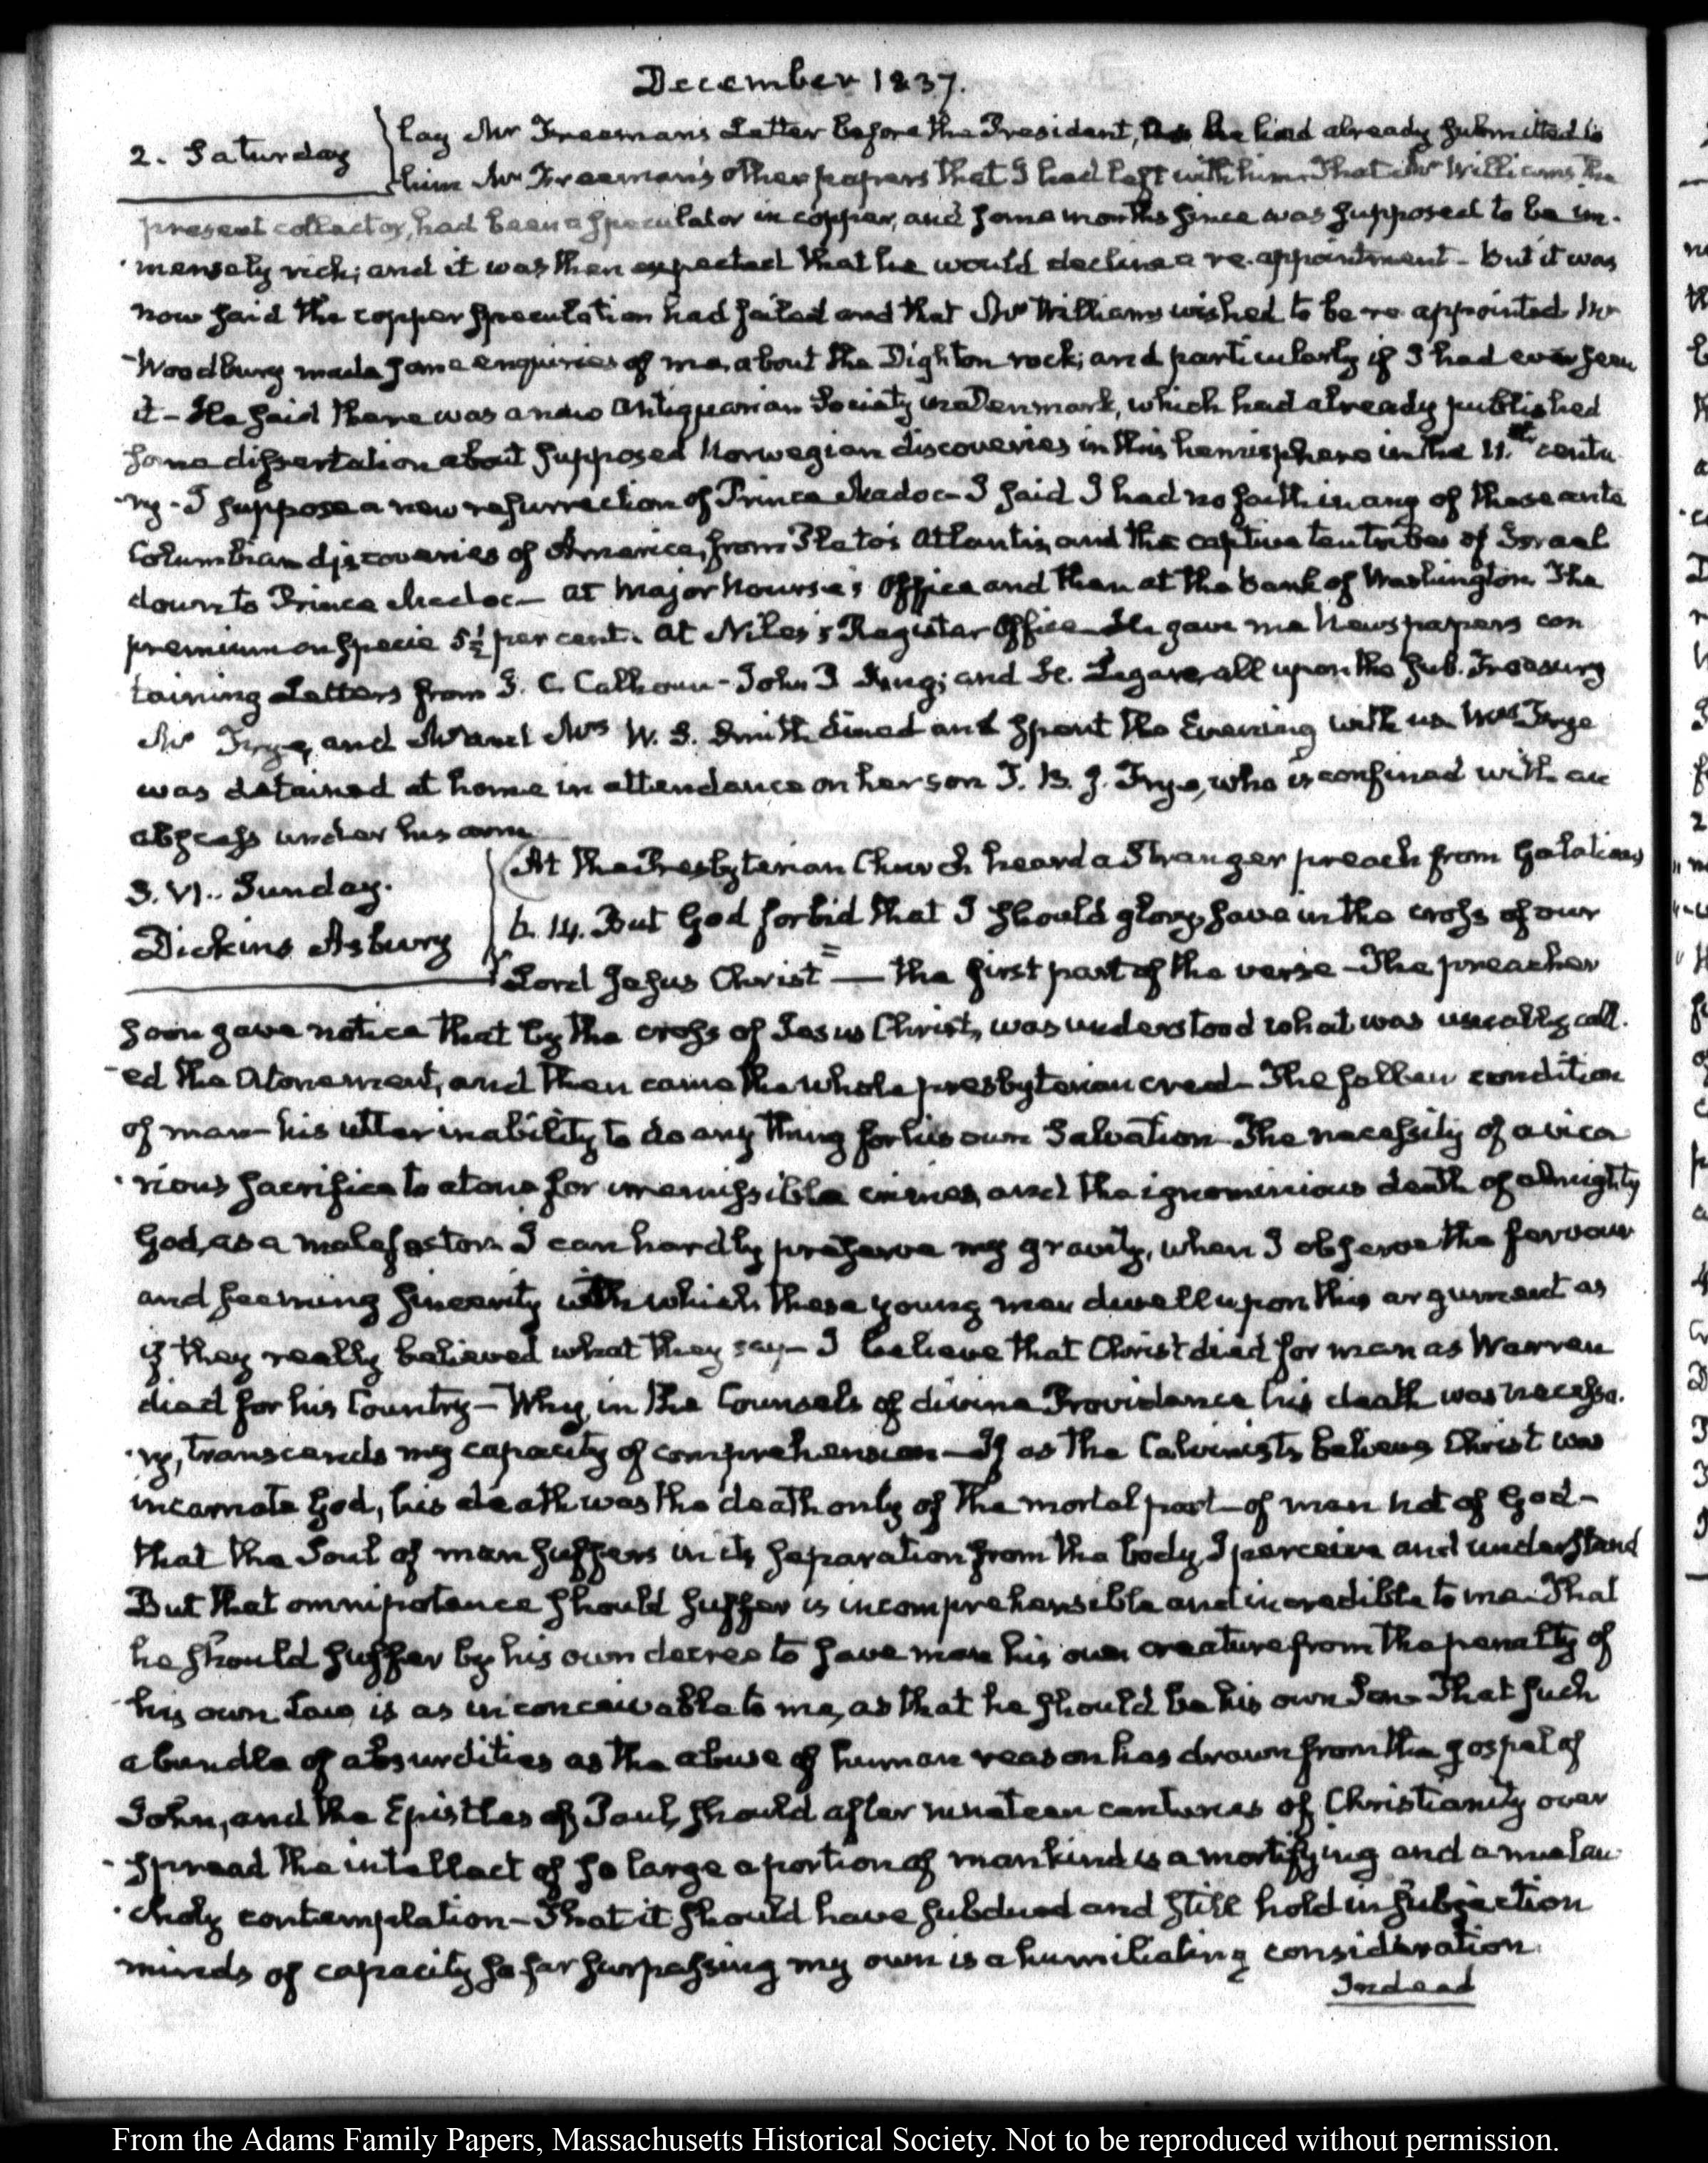 December 1837.
2. Saturday
lay Mr Freeman's Letter before the President, as he had already submitted to
him Mr Freeman's other papers that I had left with him. That Mr Williams the
present collector, had been a speculator in copper, and some months since was supposed to be im-
mensely rich; and it was then expected that he would decline a re-appointment - But it was
now said the copper speculation had failed and that Mr Williams wished to be re appointed. Mr
Woodbury made some enquiries of me, about the Dighton rock; and particularly if I had ever seen
it - He said there was a new Antiquarian Society in Denmark, which had already published
some dissertation about supposed Norwegian discoveries in this hemisphere in the 11.th centu
-ry - I suppose a new resurrection of Prince Madoc - I said I had no faith in any of these ante
Columbian discoveries of America, from Plato's Atlantis, and the captive ten tribes of Israel
down to Prince Madoc - At Major Nourse's Office and then at the Bank of Washington. The
premium on specie 5½ per cent. At Niles's Register Office - He gave me Newspapers con
taining Letters from J. C. Calhoun - John P King; and H. Legaré, all upon the sub. Treasury
Mr Frye, and Mr and Mrs W. S. Smith dined and spent the Evening with us. Mrs Frye
was detained at home in attendance on her son T. B. J. Frye, who is confined with an
abscess under his arm
3. VI. Sunday.
Dickins Asbury
At the Presbyterian Church heard a Stranger preach from Galatians
6. 14. But God forbid that I should glory, save in the cross of our
Lord Jesus Christ = — the first part of the verse - The preacher
soon gave notice that by the cross of Jesus Christ, was understood what was usually call-
-ed the Atonement, and then came the whole presbyterian creed - The fallen condition
of man - his utter inability to do any thing for his own Salvation - The necessity of a vica
-rious sacrifice to atone for irremissible crimes, and the ignominious death of almighty
God, as a malefactor. I can hardly preserve my gravity, when I observe the fervour
and seeming sincerity with which these young men dwell upon this argument as
if they really believed what they say - I believe that Christ died for man as Warren
died for his Country - Why, in the Counsels of divine Providence his death was necessa-
-ry, transcends my capacity of comprehension - If as the Calvinists believe Christ was
incarnate God, his death was the death only of the mortal part - of man not of God -
that the Soul of man suffers in its separation from the body, I perceive and understand
But that omnipotence should suffer is incomprehensible and incredible to me - That
he should suffer by his own decree to save man his own creature from the penalty of
his own Law, is as inconceivable to me, as that he should be his own Son - That such
a bundle of absurdities as the abuse of human reason has drawn from the gospel of
John, and the Epistles of Paul, should after nineteen centuries of Christianity over
-spread the intellect of so large a portion of mankind is a mortifying and a melan
-choly contemplation - That it should have subdued and still hold in subjection
minds of capacity so far surpassing my own is a humiliating consideration.
Indeed
From the Adams Family Papers, Massachusetts Historical Society. Not to be reproduced without permission.